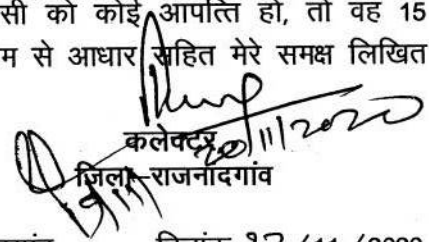 सी को कोई आपत्ति हो, तो वह 15
म से आधार सहित मेरे समक्ष लिखित
20/11/2020
कलेक्टर
जिला-राजनांदगांव
दिनांक /11/2020